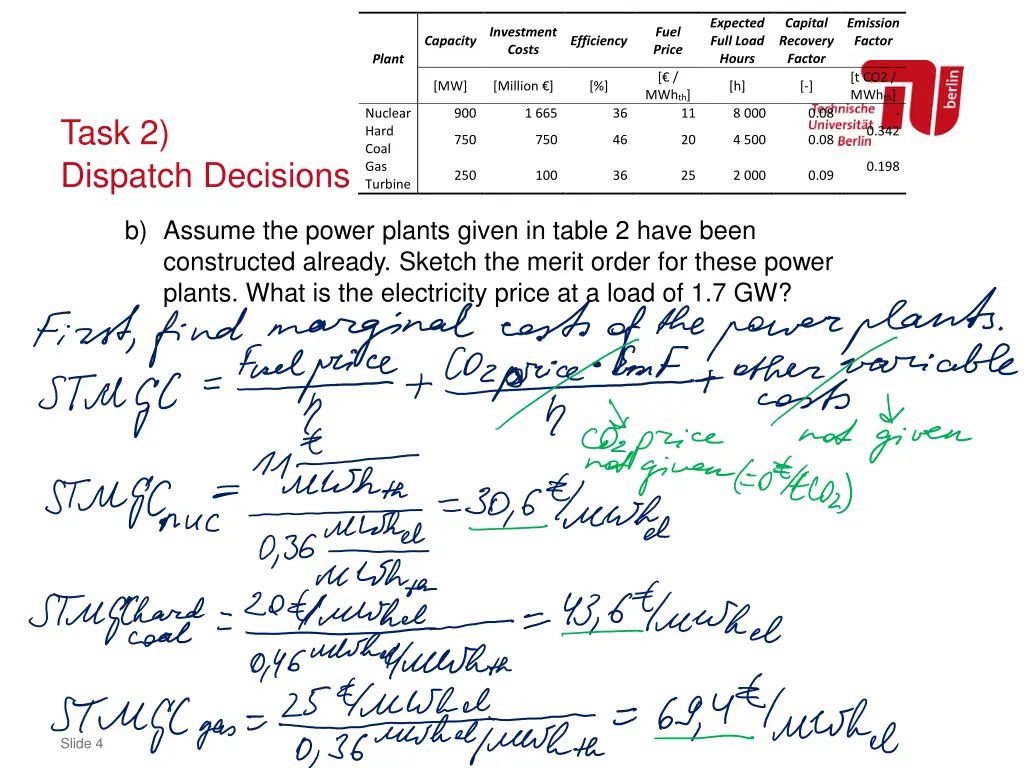 Plant Capacity Investment Costs Efficiency Fuel Price Expected Full Load Hours Capital Recovery Factor Emission Factor
[MW] [Million €] [%] [€ / MWhth] [h] [-] [t CO2 / MWhth]
Nuclear 900 1 665 36 11 8 000 0.08 -
Hard Coal 750 750 46 20 4 500 0.08 0.342
Gas Turbine 250 100 36 25 2 000 0.09 0.198
Technische
Universität
Berlin
berlin
Task 2)
Dispatch Decisions
b) Assume the power plants given in table 2 have been
constructed already. Sketch the merit order for these power
plants. What is the electricity price at a load of 1.7 GW?
First, find marginal costs of the power plants.
STMGC = Fuel price / η + CO2 price · EmF / η + other variable costs
CO2 price not given (=0 €/tCO2)
not given
STMGCnuc = 11 €/MWhth / 0,36 MWhel/MWhth = 30,6 €/MWhel
STMGChard coal = 20 €/MWhel / 0,46 MWhel/MWhth = 43,6 €/MWhel
STMGCgas = 25 €/MWhel / 0,36 MWhel/MWhth = 69,4 €/MWhel
Slide 4